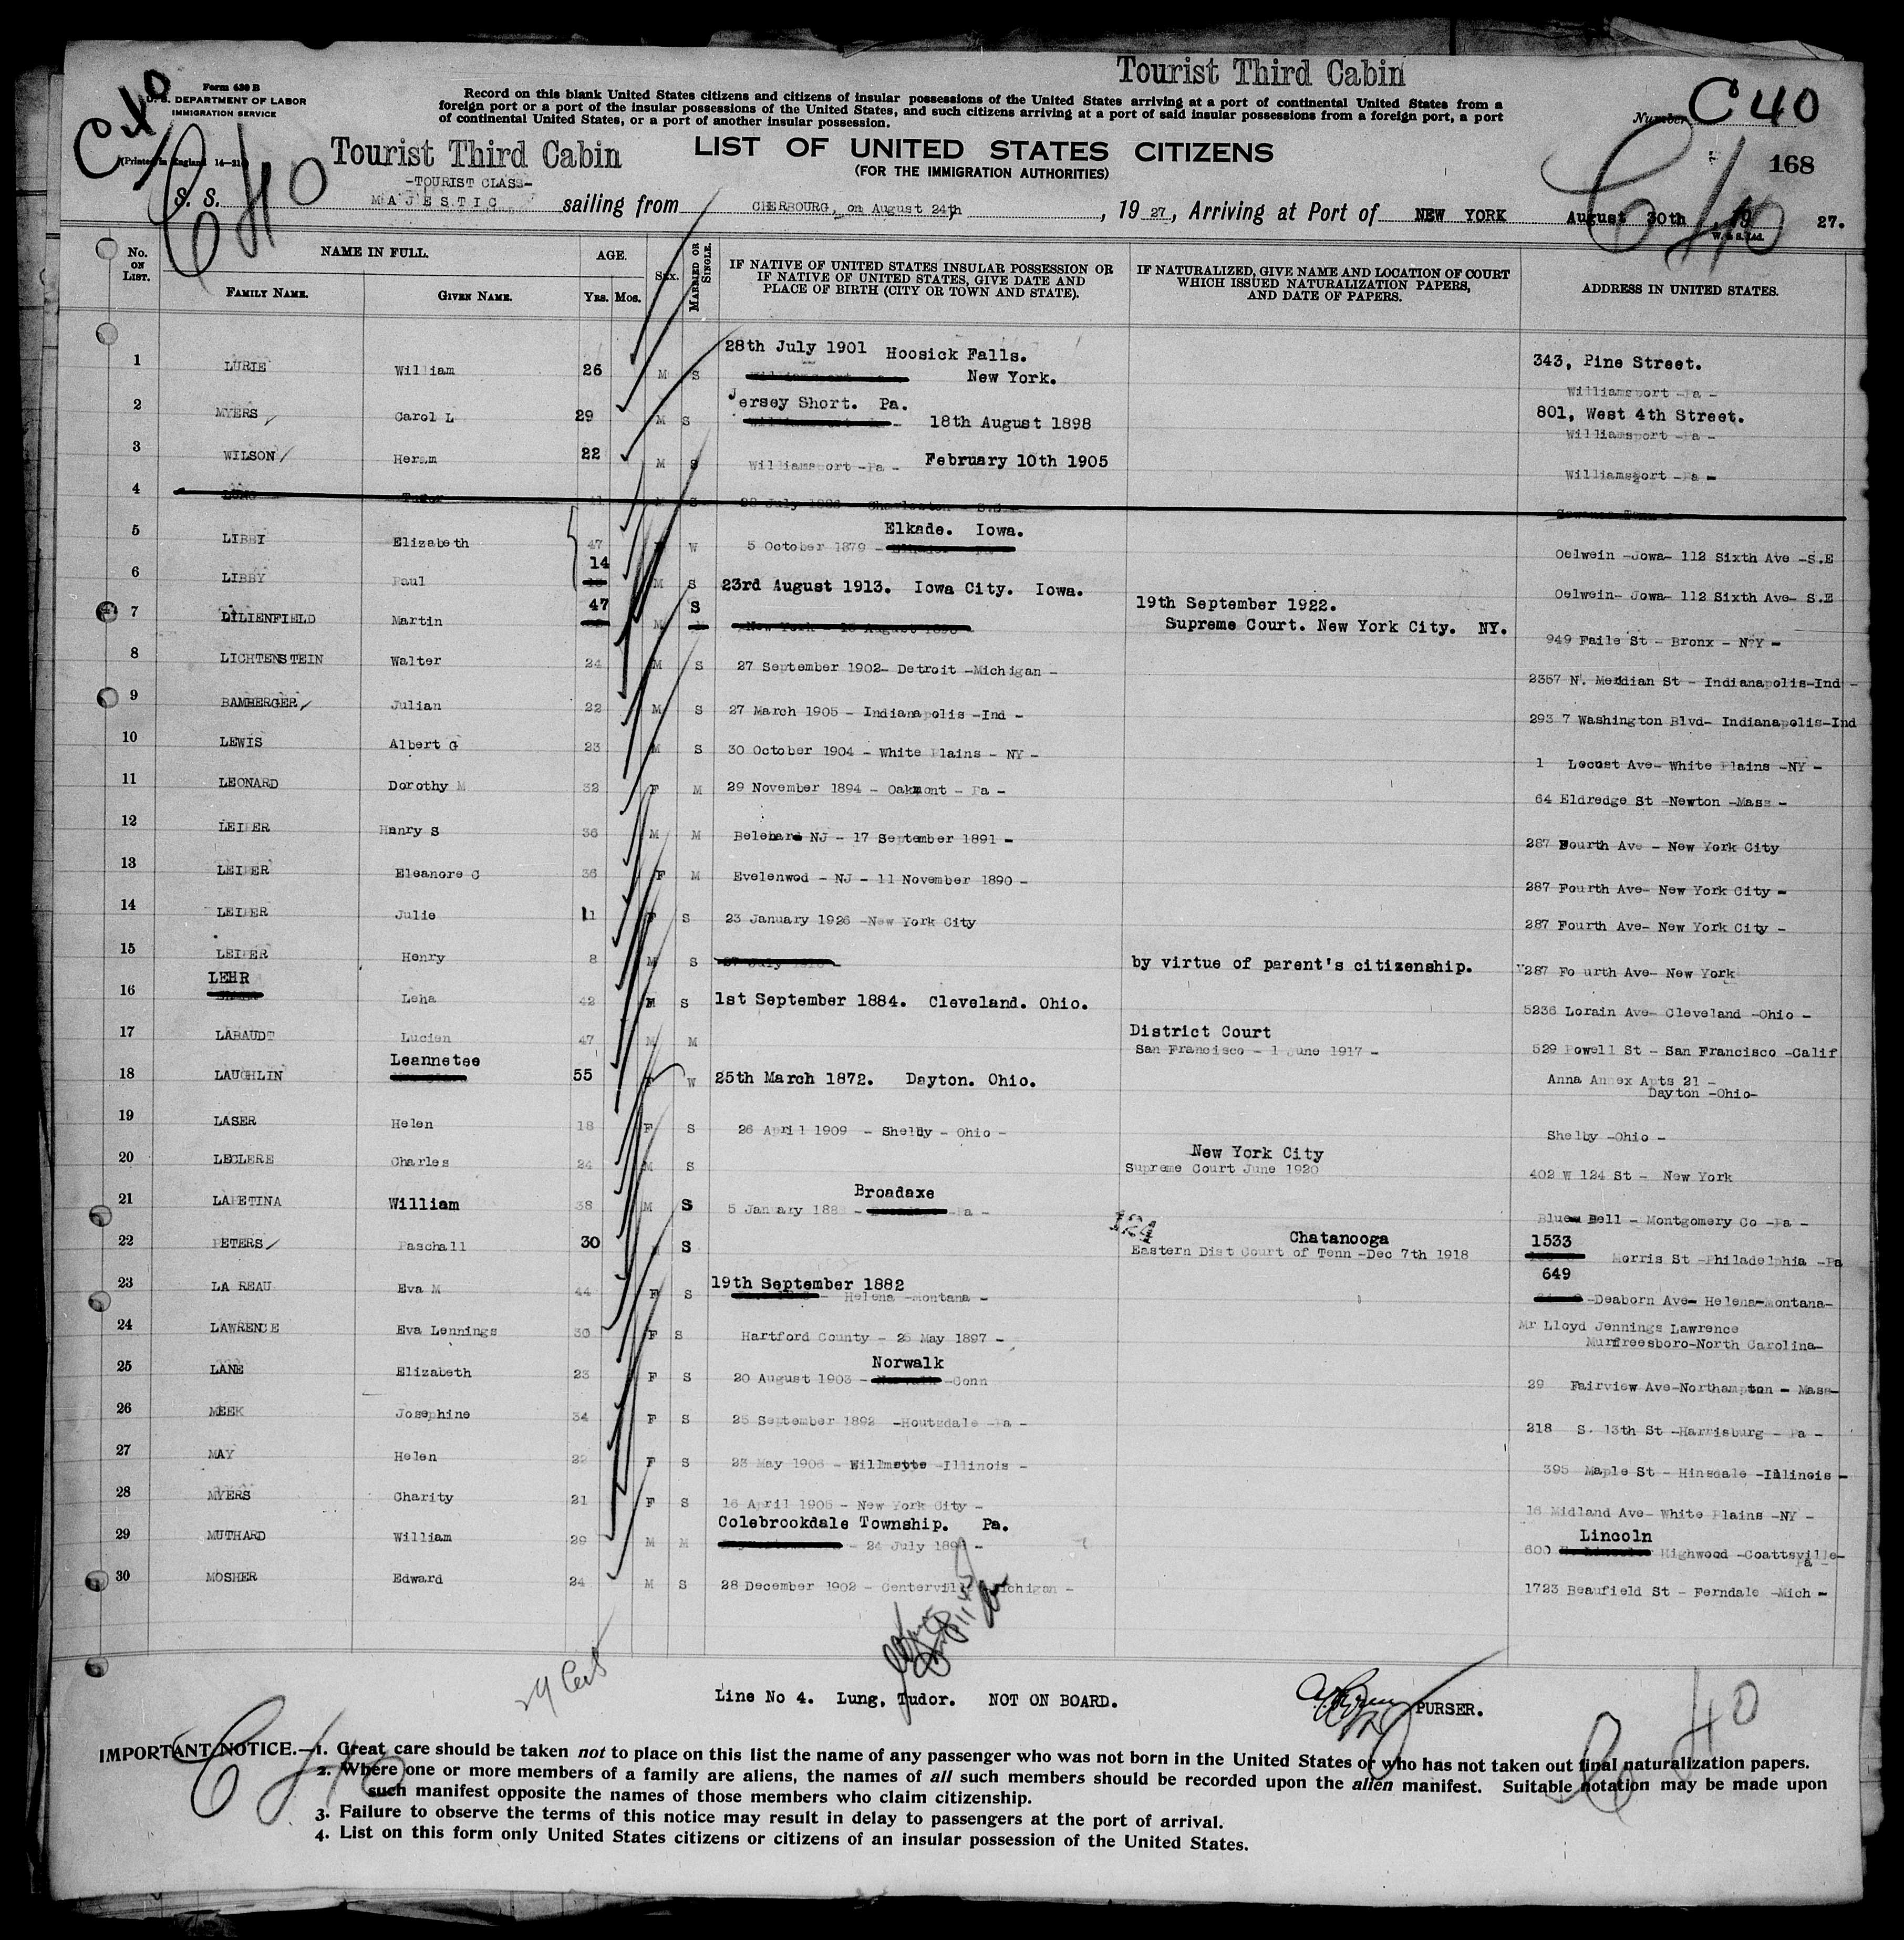 Tourist Third Cabin
Form 630 B
U. S. DEPARTMENT OF LABOR
IMMIGRATION SERVICE
Record on this blank United States citizens and citizens of insular possessions of the United States arriving at a port of continental United States from a
foreign port or a port of the insular possessions of the United States, and such citizens arriving at a port of said insular possessions from a foreign port, a port
of continental United States, or a port of another insular possession.
Number C 40
C 40
C 40
(Printed in England
Tourist Third Cabin
LIST OF UNITED STATES CITIZENS
(FOR THE IMMIGRATION AUTHORITIES)
168
C 40
-TOURIST CLASS-
S. S. MAJESTIC sailing from CHERBOURG, on August 24th, 19 27, Arriving at Port of NEW YORK August 30th, 19 27.
W. & S. Ltd.
No. ON LIST.
NAME IN FULL.
FAMILY NAME. GIVEN NAME.
AGE.
YRS. MOS.
SEX.
MARRIED OR SINGLE.
IF NATIVE OF UNITED STATES INSULAR POSSESSION OR
IF NATIVE OF UNITED STATES, GIVE DATE AND
PLACE OF BIRTH (CITY OR TOWN AND STATE).
IF NATURALIZED, GIVE NAME AND LOCATION OF COURT
WHICH ISSUED NATURALIZATION PAPERS,
AND DATE OF PAPERS.
ADDRESS IN UNITED STATES.
1 LURIE William 26 M S 28th July 1901 Hoosick Falls. New York. 343, Pine Street. Williamsport -Pa -
2 MYERS Carol L 29 M S Jersey Short. Pa. 18th August 1898 801, West 4th Street. Williamsport -Pa -
3 WILSON Heram 22 M S Williamsport -Pa - February 10th 1905 Williamsport -Pa -
4 LUNG Tudor 41 M S 28 July 1886 - Charleston - S.C -
5 LIBBY Elizabeth 47 F W 5 October 1879 - Elkade. Iowa. Oelwein -Jowa- 112 Sixth Ave -S.E
6 LIBBY Paul 14 M S 23rd August 1913. Iowa City. Iowa. Oelwein- Jowa- 112 Sixth Ave- S.E
7 LILIENFIELD Martin 47 M S New York - 19th September 1922. Supreme Court. New York City. NY. 949 Faile St - Bronx - NY -
8 LICHTENSTEIN Walter 24 M S 27 September 1902- Detroit -Michigan - 2357 N. Meridian St - Indianapolis-Ind -
9 BAMBERGER Julian 22 M S 27 March 1905 - Indianapolis -Ind - 293 7 Washington Blvd- Indianapolis-Ind
10 LEWIS Albert G 23 M S 30 October 1904 - White Plains - NY - 1 Locust Ave- White Plains -NY -
11 LEONARD Dorothy M 32 F M 29 November 1894 - Oakmont - Pa - 64 Eldredge St -Newton -Mass -
12 Henry S 36 M M NJ - 17 September 1891 - 287 Fourth Ave - New York City
13 Eleanore C 36 F M Evelenwod - NJ - 11 November 1890 - 287 Fourth Ave- New York City -
14 Julie F S 23 January 1926 -New York City 287 Fourth Ave- New York City -
15 Henry 8 M S by virtue of parent's citizenship. 287 Fo urth Ave- New York
16 LEHR Leha 42 S 1st September 1884. Cleveland. Ohio. 5236 Lorain Ave- Cleveland -Ohio -
17 LABAUDT Lucien 47 M M District Court San Francisco - 1 June 1917 - 529 Powell St - San Francisco -Calif
18 LAUGHLIN Leannetee 55 F W 25th March 1872. Dayton. Ohio. Anna Annex Apts 21 - Dayton -Ohio-
19 LASER Helen 18 F S 26 April 1909 - Shelby - Ohio - Shelby -Ohio -
20 LECLERE Charles 24 M S New York City Supreme Court June 1920 402 W 124 St - New York
21 LAPETINA William 38 M S 5 January 188 - Broadaxe -Pa - Blue Bell - Montgomery Co -Pa -
22 PETERS Paschall 30 M S 124 Chatanooga Eastern Dist Court of Tenn -Dec 7th 1918 1533 Morris St -Philadelphia -Pa
23 LA REAU Eva M 44 F S 19th September 1882 - Helena -Montana - 649 -Deaborn Ave- Helena-Montana-
24 LAWRENCE Eva Lennings 30 F S Hartford County - 25 May 1897 - Mr Lloyd Jennings Lawrence Murfreesboro-North Carolina-
25 LANE Elizabeth 23 F S 20 August 1903 - Norwalk -Conn 29 Fairview Ave-Northampton - Mass-
26 MEEK Josephine 34 F S 25 September 1892 -Houtzdale -Pa - 218 S. 13th St -Harrisburg - Pa -
27 MAY Helen 22 F S 23 May 1905 - Willmette -Illinois - 395 Maple St - Hinsdale -Illinois -
28 MYERS Charity 21 F S 16 April 1905 - New York City - 16 Midland Ave- White Plains -NY -
29 MUTHARD William 29 M M Colebrookdale Township. Pa. - 24 July - 600 Lincoln Highwood -Coattsville- Pa
30 MOSHER Edward 24 M S 28 December 1902 - Centerville Michigan - 1723 Beaufield St - Ferndale -Mich -
Line No 4. Lung, Tudor. NOT ON BOARD.
PURSER.
C 40
IMPORTANT NOTICE.—1. Great care should be taken not to place on this list the name of any passenger who was not born in the United States or who has not taken out final naturalization papers.
2. Where one or more members of a family are aliens, the names of all such members should be recorded upon the alien manifest. Suitable notation may be made upon
such manifest opposite the names of those members who claim citizenship.
3. Failure to observe the terms of this notice may result in delay to passengers at the port of arrival.
4. List on this form only United States citizens or citizens of an insular possession of the United States.